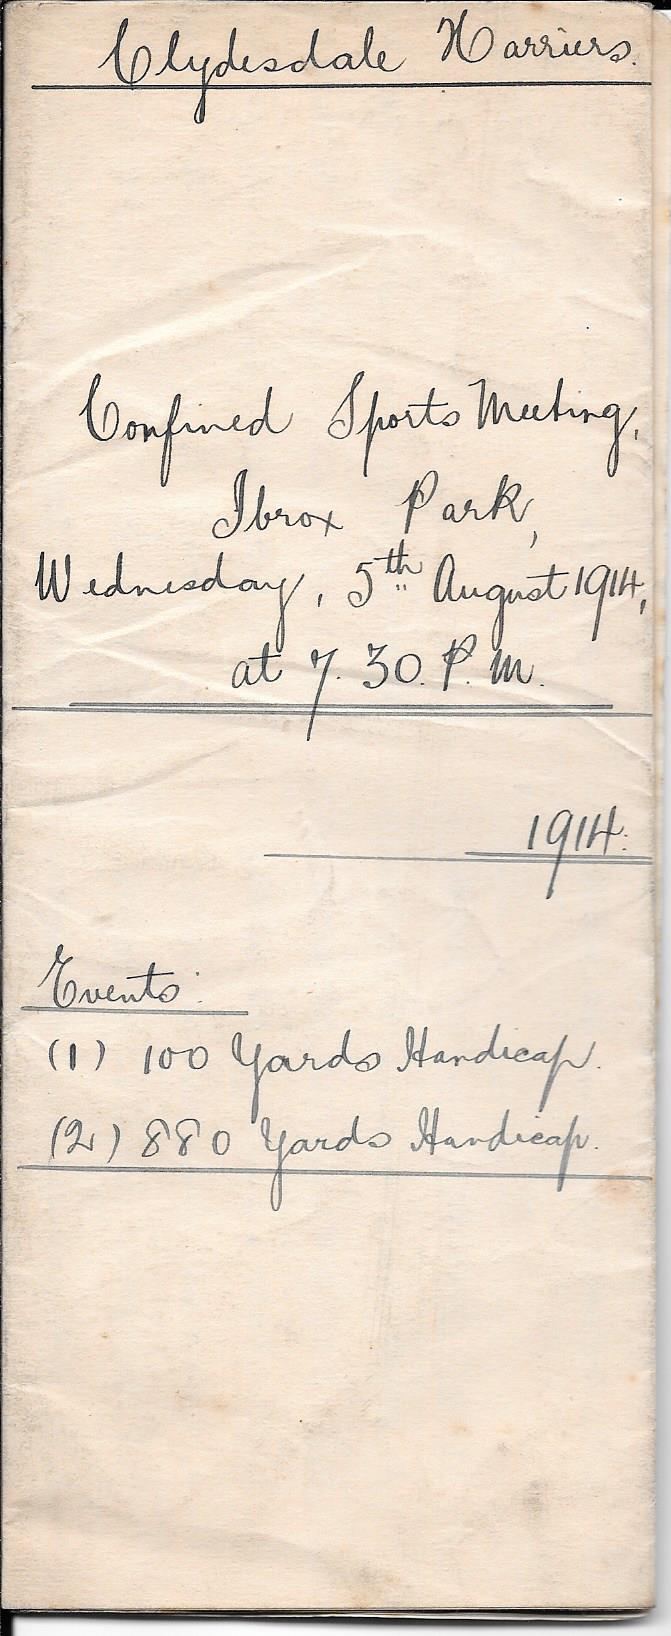 Clydesdale Harriers.
Confined Sports Meeting,
Ibrox Park,
Wednesday, 5th August 1914,
at 7.30. P.M.
1914.
Events:
(1) 100 Yards Handicap.
(2) 880 Yards Handicap.